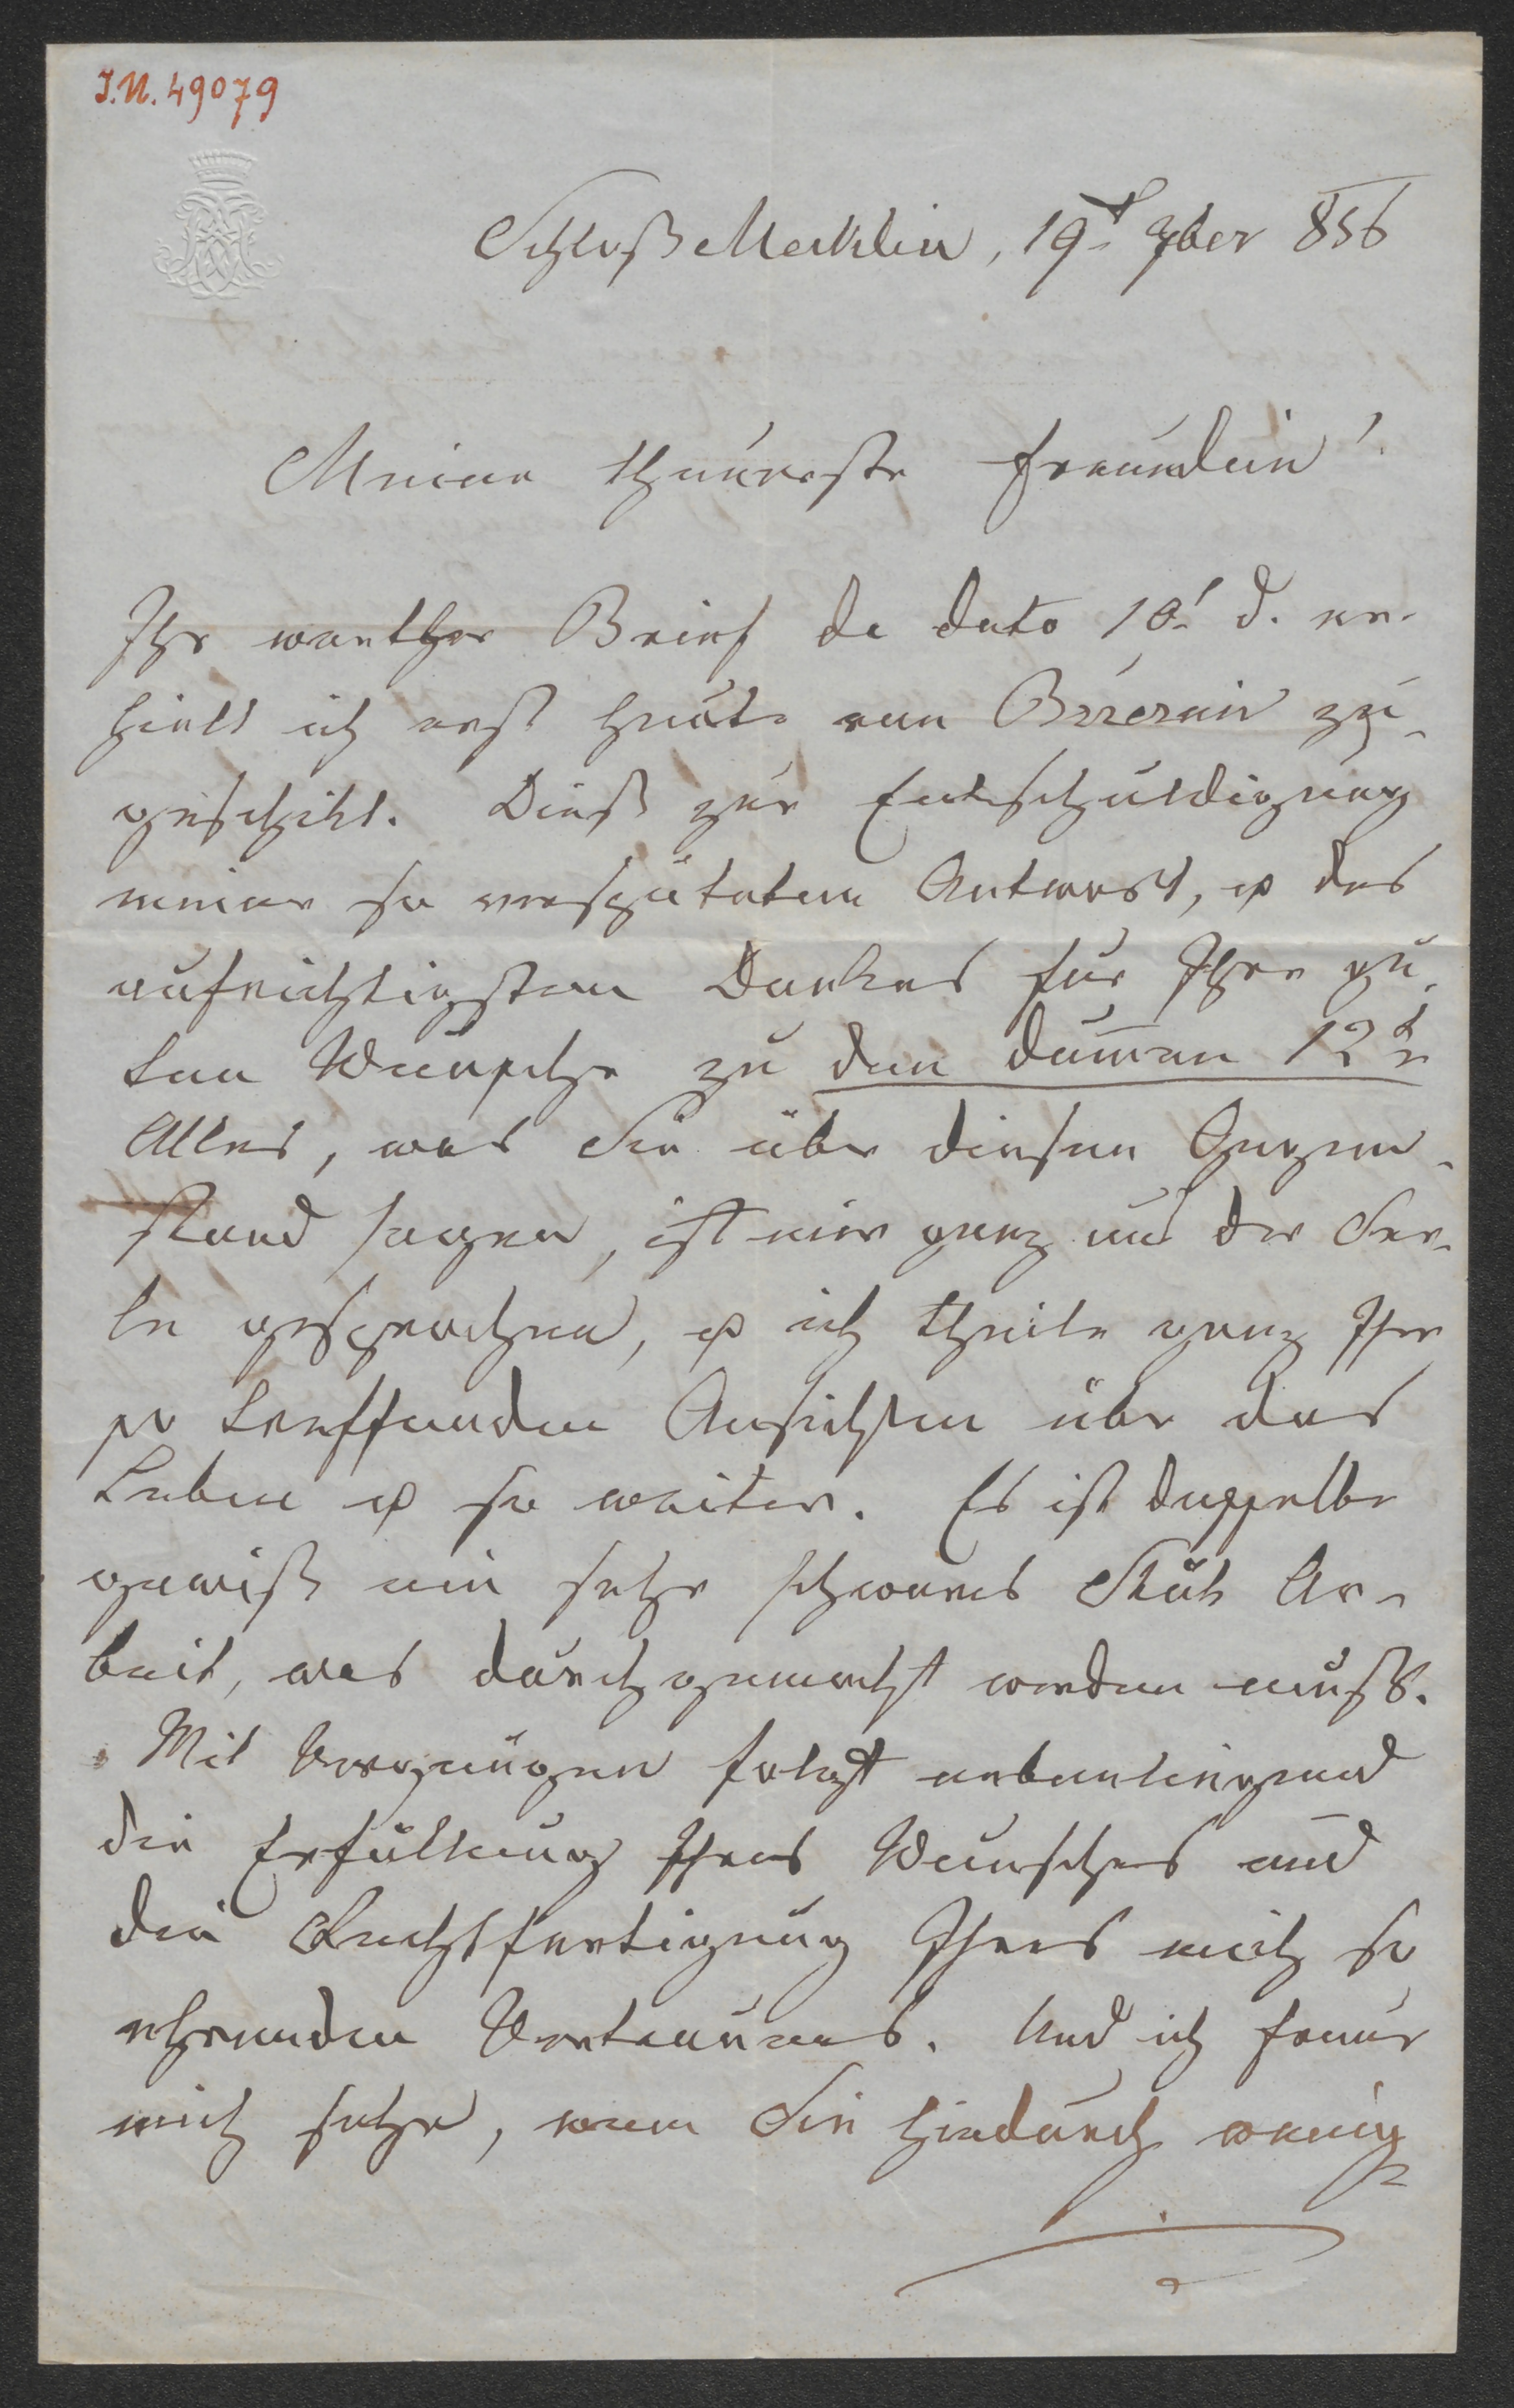 I.N. 49079
Schloß Merklin, 19t 9ber 856
Meine theuerste Freundin!
Ihr werther Brief de dato 10t d. er-
hielt ich erst heute von Březnin zu-
geschikt. Dieß zur Entschuldigung
meiner so verspäteten Antwort, & des
aufrichtigsten Dankes für Ihre gu-
ten Wünsche zu den dummen 12t
Alles, was Sie über diesen Gegen-
stand sagen, ist mir ganz aus der See-
le gesprochen, & ich theile ganz Ihre
so treffenden Ansichten über das
Leben & so weiter. Es ist dasselbe
gewiß ein sehr schweres Stük Ar-
beit, was durchgemacht werden muß.
Mit Vergnügen folgt nebenliegend
die Erfüllung Ihres Wunsches und
die Rechtfertigung Ihres mich so
ehrenden Vertrauens. Und ich freue
mich sehr, wenn Sie hiedurch wenig